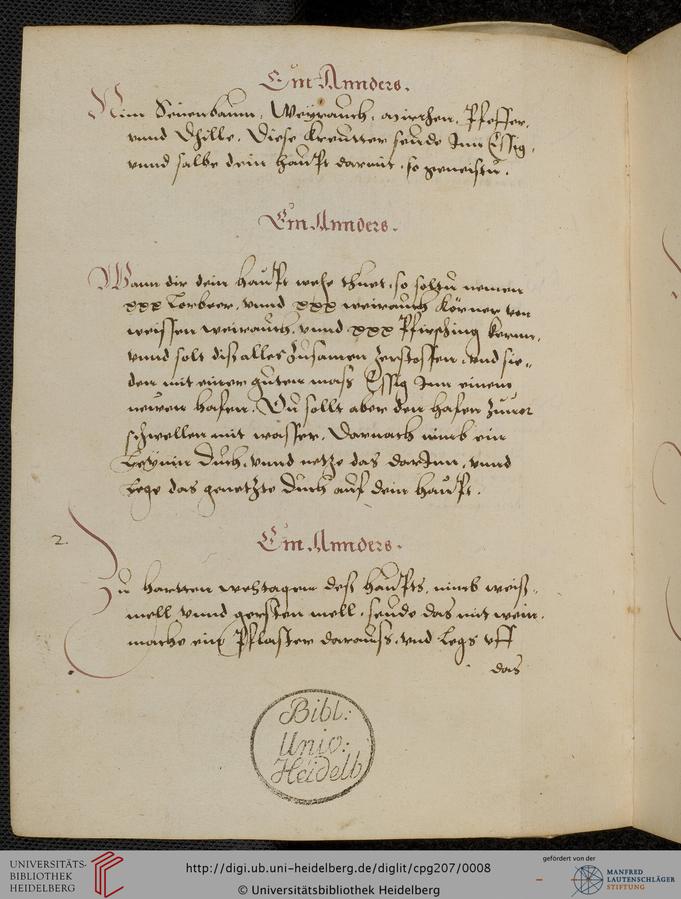 Ein Annders.
Nim Seuenbaum, Weyrauch, Pfeffer,
vnnd Dhille, Diese kreutter seude Inn Essig,
vnnd salbe dein haupt darmit, so geneistu.
Ein Annders.
Wann dir dein haupt wehe thuet, so soltu nemen
xxx Lorbeer, vnnd xxx weirauch körner von
weissen weirauch, vnnd xxx Pfirsching kernn,
vnnd solt diß alles zusamen zerstossen, vnd sie„
den mit einer guten mass Essig Inn einem
newen hafen. Du sollt aber den hafen zuuor
schwellen mit wasser, Darnach nimb ein
Leynin Duch, vnnd netze das darInn, vnnd
Lege das genetzte Duch auf dein haupt.
2.
Ein Annders.
Zu hartten wehtagen deß haupts, nimb weiß„
mell vnnd gersten mell, seude das mit wein,
mache ein Pflaster darauss, vnd Legs vff
das
Bibl:
Univ:
Heidelb
UNIVERSITÄTS-
BIBLIOTHEK
HEIDELBERG
http://digi.ub.uni-heidelberg.de/diglit/cpg207/0008
© Universitätsbibliothek Heidelberg
gefördert von der
MANFRED
LAUTENSCHLÄGER
STIFTUNG